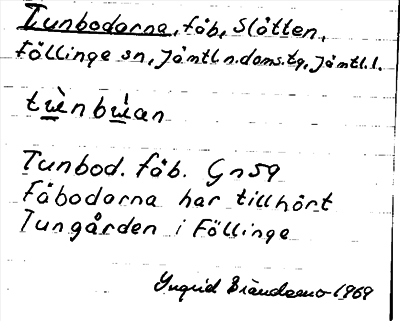 Tunbodarna, fäb, Slåtten,
Föllinge sn, Jämtl n. doms. tg, Jämtl. l.
tẁnbẃan
Tunbod. fäb. Gn 59
Fäbodarna har tillhört
Tungården i Föllinge
Yngrid 1969